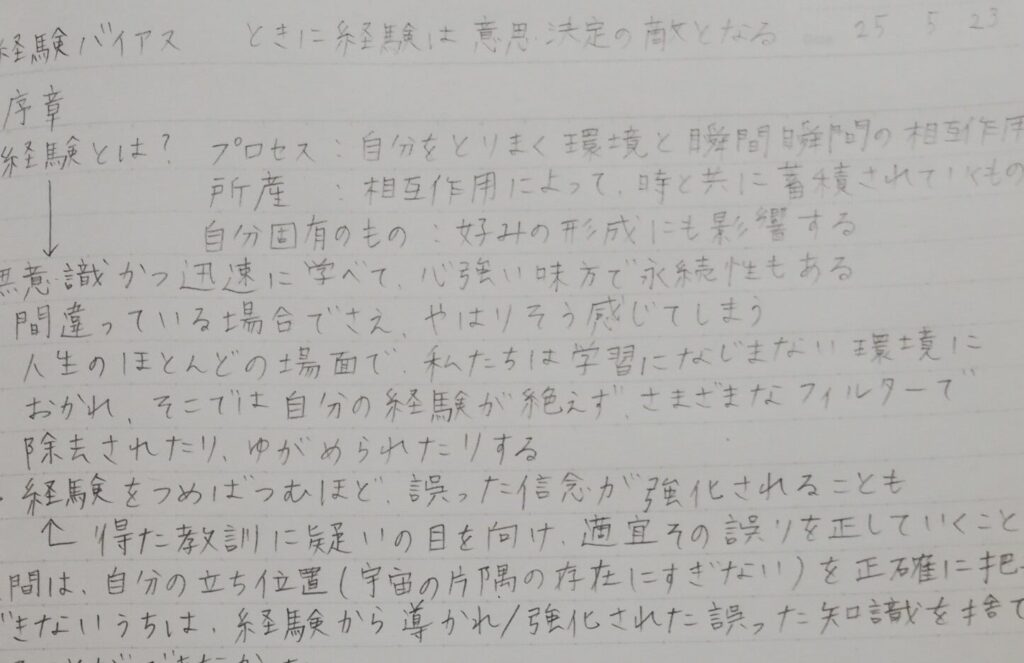 経験バイアス ときに経験は意思決定の敵となる 25 5 23
序章
経験とは? プロセス:自分をとりまく環境と瞬間瞬間の相互作用
所産 :相互作用によって、時と共に蓄積されていくもの
自分固有のもの:好みの形成にも影響する
無意識かつ迅速に学べて、心強い味方で永続性もある
間違っている場合でさえ、やはりそう感じてしまう
人生のほとんどの場面で、私たちは学習になじまない環境に
おかれ、そこでは自分の経験が絶えず、さまざまなフィルターで
除去されたり、ゆがめられたりする
・経験をつめばつむほど、誤った信念が強化されることも
↑ 得た教訓に疑いの目を向け、適宜その誤りを正していくこと
間は、自分の立ち位置(宇宙の片隅の存在にすぎない)を正確に把
できないうちは、経験から導かれ/強化された誤った知識を捨て